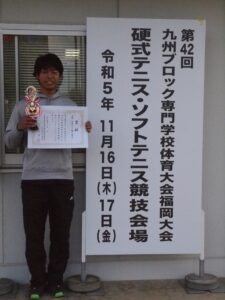 第42回
九州ブロック専門学校体育大会福岡大会
硬式テニス・ソフトテニス競技会場
令和5年11月16日(木)17日(金)
賞状